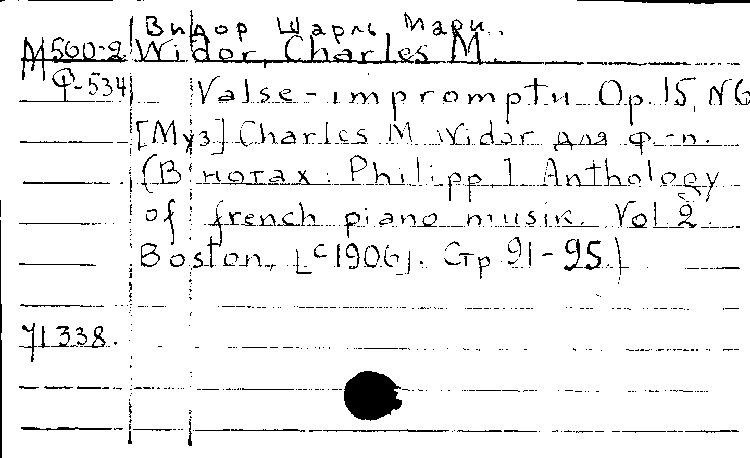 Видор Шарль Мари.
М560-2 Widor, Charles M.
Ф-534
Valse-impromptu Op. 15, N6
[Муз] Charles M Widor для ф-п.
(В нотах: Philipp, I Anthology
of french piano musik. Vol 2.
Boston, [c1906]. Стр 91-95.)
71338.